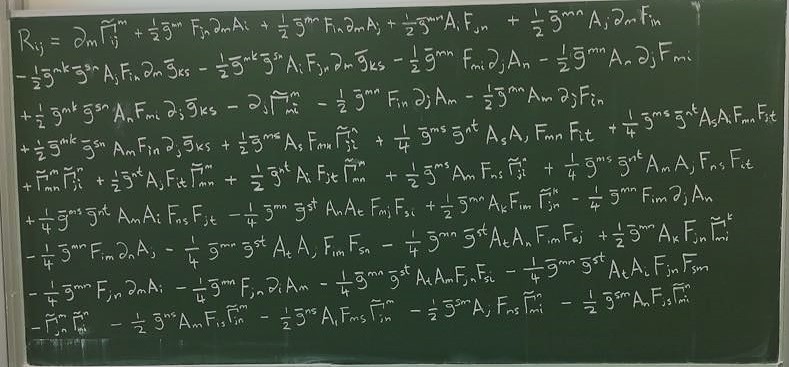 R_{ij} = ∂_m Γ̃^m_{ij} + ½ g̅^{mn} F_{jn} ∂_m A_i + ½ g̅^{mn} F_{in} ∂_m A_j + ½ g̅^{mn} A_i F_{jn} + ½ g̅^{mn} A_j ∂_m F_{in}
- ½ g̅^{mk} g̅^{sn} A_j F_{in} ∂_m g̅_{ks} - ½ g̅^{mk} g̅^{sn} A_i F_{jn} ∂_m g̅_{ks} - ½ g̅^{mn} F_{mi} ∂_j A_n - ½ g̅^{mn} A_n ∂_j F_{mi}
+ ½ g̅^{mk} g̅^{sn} A_n F_{mi} ∂_j g̅_{ks} - ∂_j Γ̃^m_{mi} - ½ g̅^{mn} F_{in} ∂_j A_m - ½ g̅^{mn} A_m ∂_j F_{in}
+ ½ g̅^{mk} g̅^{sn} A_m F_{in} ∂_j g̅_{ks} + ½ g̅^{ms} A_s F_{mn} Γ̃^n_{ji} + ¼ g̅^{ms} g̅^{nt} A_s A_j F_{mn} F_{it} + ¼ g̅^{ms} g̅^{nt} A_s A_i F_{mn} F_{jt}
+ Γ̃^m_{mn} Γ̃^n_{ji} + ½ g̅^{nt} A_j F_{it} Γ̃^m_{mn} + ½ g̅^{nt} A_i F_{jt} Γ̃^m_{mn} + ½ g̅^{ms} A_m F_{ns} Γ̃^n_{ji} + ¼ g̅^{ms} g̅^{nt} A_m A_j F_{ns} F_{it}
+ ¼ g̅^{ms} g̅^{nt} A_m A_i F_{ns} F_{jt} - ¼ g̅^{mn} g̅^{st} A_n A_t F_{mj} F_{si} + ½ g̅^{mn} A_k F_{im} Γ̃^k_{jn} - ¼ g̅^{mn} F_{im} ∂_j A_n
- ¼ g̅^{mn} F_{im} ∂_n A_j - ¼ g̅^{mn} g̅^{st} A_t A_j F_{im} F_{sn} - ¼ g̅^{mn} g̅^{st} A_t A_n F_{im} F_{sj} + ½ g̅^{mn} A_k F_{jn} Γ̃^k_{mi}
- ¼ g̅^{mn} F_{jn} ∂_m A_i - ¼ g̅^{mn} F_{jn} ∂_i A_m - ¼ g̅^{mn} g̅^{st} A_t A_m F_{jn} F_{si} - ¼ g̅^{mn} g̅^{st} A_t A_i F_{jn} F_{sm}
- Γ̃^m_{jn} Γ̃^n_{mi} - ½ g̅^{ns} A_m F_{is} Γ̃^m_{jn} - ½ g̅^{ns} A_i F_{ms} Γ̃^m_{jn} - ½ g̅^{sm} A_j F_{ns} Γ̃^n_{mi} - ½ g̅^{sm} A_n F_{js} Γ̃^n_{mi}